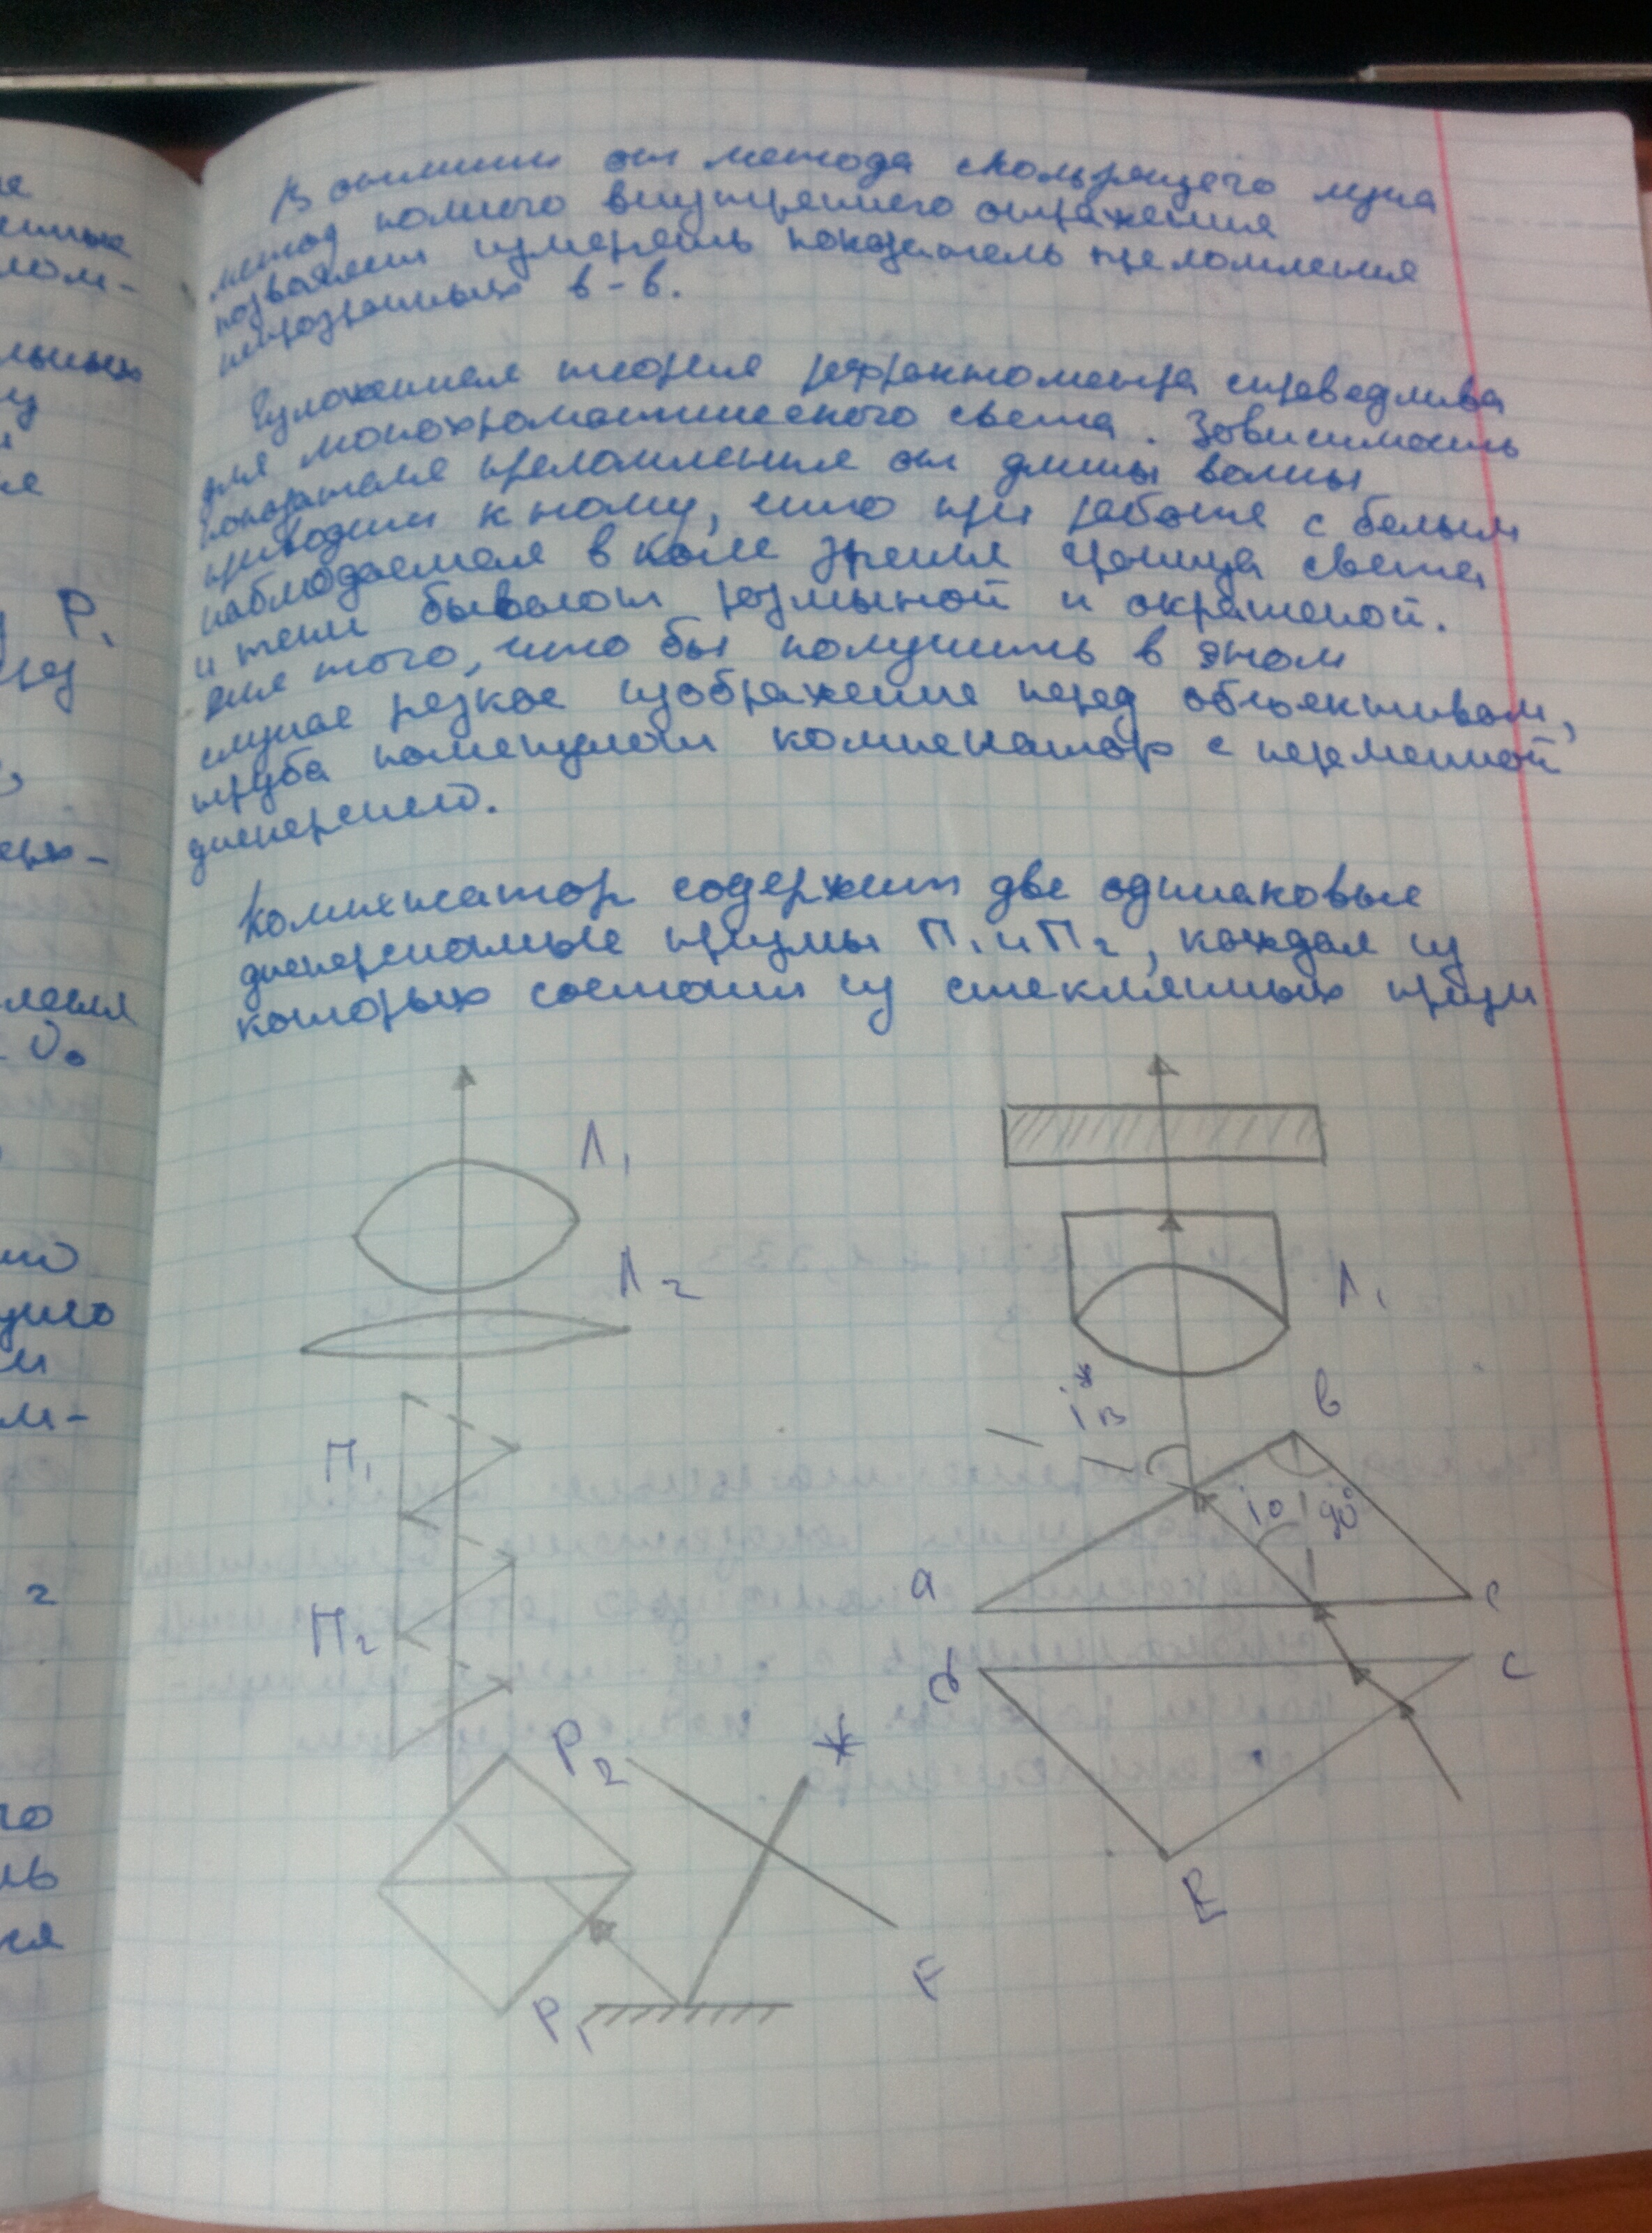 В отличии от метода скользящего луча
метод полного внутреннего отражения
позволяет измерять показатель преломления
непрозрачных в-в.
Изложенная теория рефрактометра справедлива
для монохроматического света. Зависимость
показателя преломления от длины волны
приводит к тому, что при работе с белым
наблюдаемая в поле зрения граница света
и тени бывают размытой и окрашеной.
Для того, что бы получить в этом
случае резкое изображение перед объективом,
труба помещают компенсатор с переменной
дисперсией.
Компенсатор содержит две одинаковые
дисперсионные призмы П₁ и П₂, каждая из
которых состоит из стеклянных призм
Л₁
Л₂
Л₁
i*в
в
П₁
i₀
90°
a
c
П₂
d
c
P₂
E
F
P₁
P₁